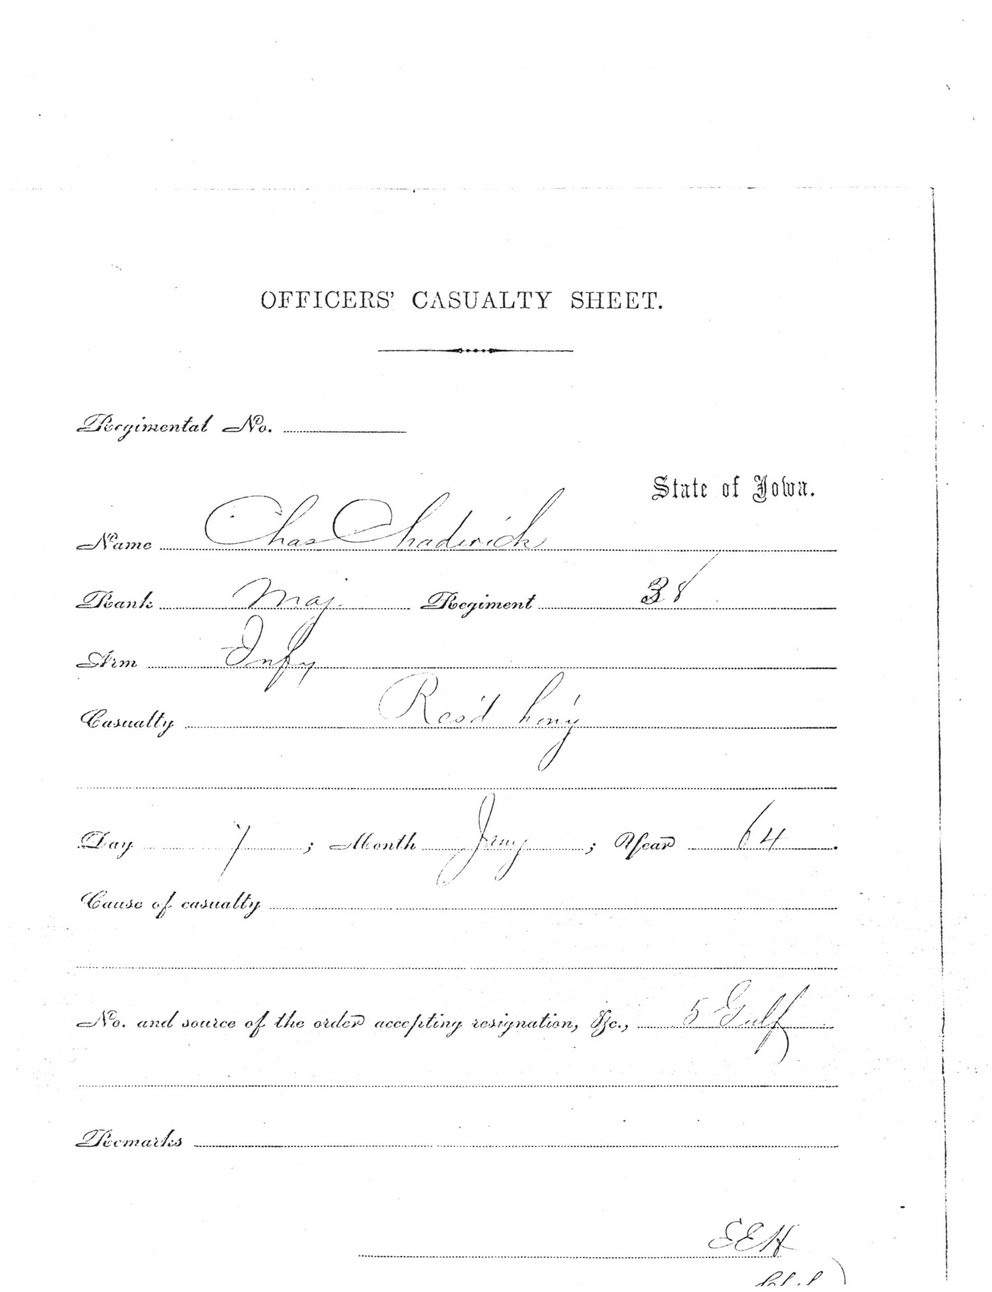 OFFICERS' CASUALTY SHEET.
Regimental No.
State of Iowa.
Name Chas Chadwick
Rank Maj. Regiment 38
Arm Infy
Casualty Res'd hon'y
Day 7 ; Month Jany ; Year 64 .
Cause of casualty
No. and source of the order accepting resignation, &c., 5 Gulf
Remarks
SEH